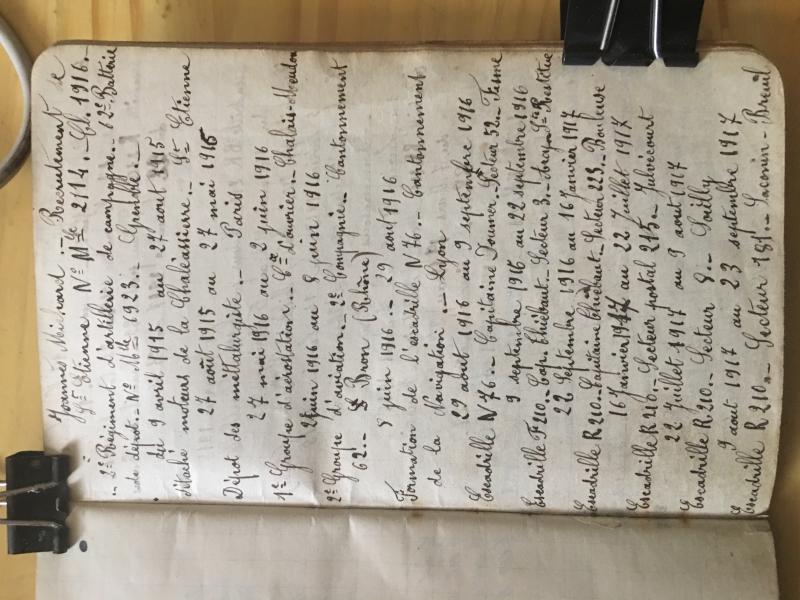 Joannès Michard .- Recrutement
St Etienne N° Mle 2114.- Cl. 1916.-
.- 2e Régiment d'artillerie de campagne.- 62e Batterie
de dépôt.- N° Mle 6923.- Grenoble.-
du 9 avril 1915 au 27 aout 1915
détaché moteurs de la Chaléassière.- St Etienne
27 août 1915 au 27 mai 1916
Dépot des métallurgiste.- Paris
27 mai 1916 au 2 juin 1916
1er Groupe d'aérostation.- Cie d'ouvrier.- Chalais-Meudon
2 juin 1916 au 8 juin 1916
2e Groupe d'aviation.- 2e Compagnie.- Cantonnement
62.- Bron (Rhône)
8 juin 1916.- 29 aout 1916
Formation de l'escadrille N 76.- Cantonnement
de la Navigation.- Lyon
29 aout 1916 au 9 septembre 1916
Escadrille N 76.- Capitaine Doumer.- Secteur 52.- Fisme
9 septembre 1916 au 22 septembre 1916
Escadrille F 210.- Cap. Thiébaut.- Secteur 3.-
22 Septembre 1916 au 16 Janvier 1917
Escadrille R 210.- Capitaine Thiébaut.- Secteur 223.-
16 Janvier 1917 au 22 Juillet 1917
Escadrille R 210.- Secteur postal 215.- Julvécourt
22 Juillet 1917 au 9 aout 1917
Escadrille R 210.- Secteur 8.- Souilly
9 aout 1917 au 23 septembre 1917
Escadrille R 210.- Secteur 181.- Saconin-Breuil